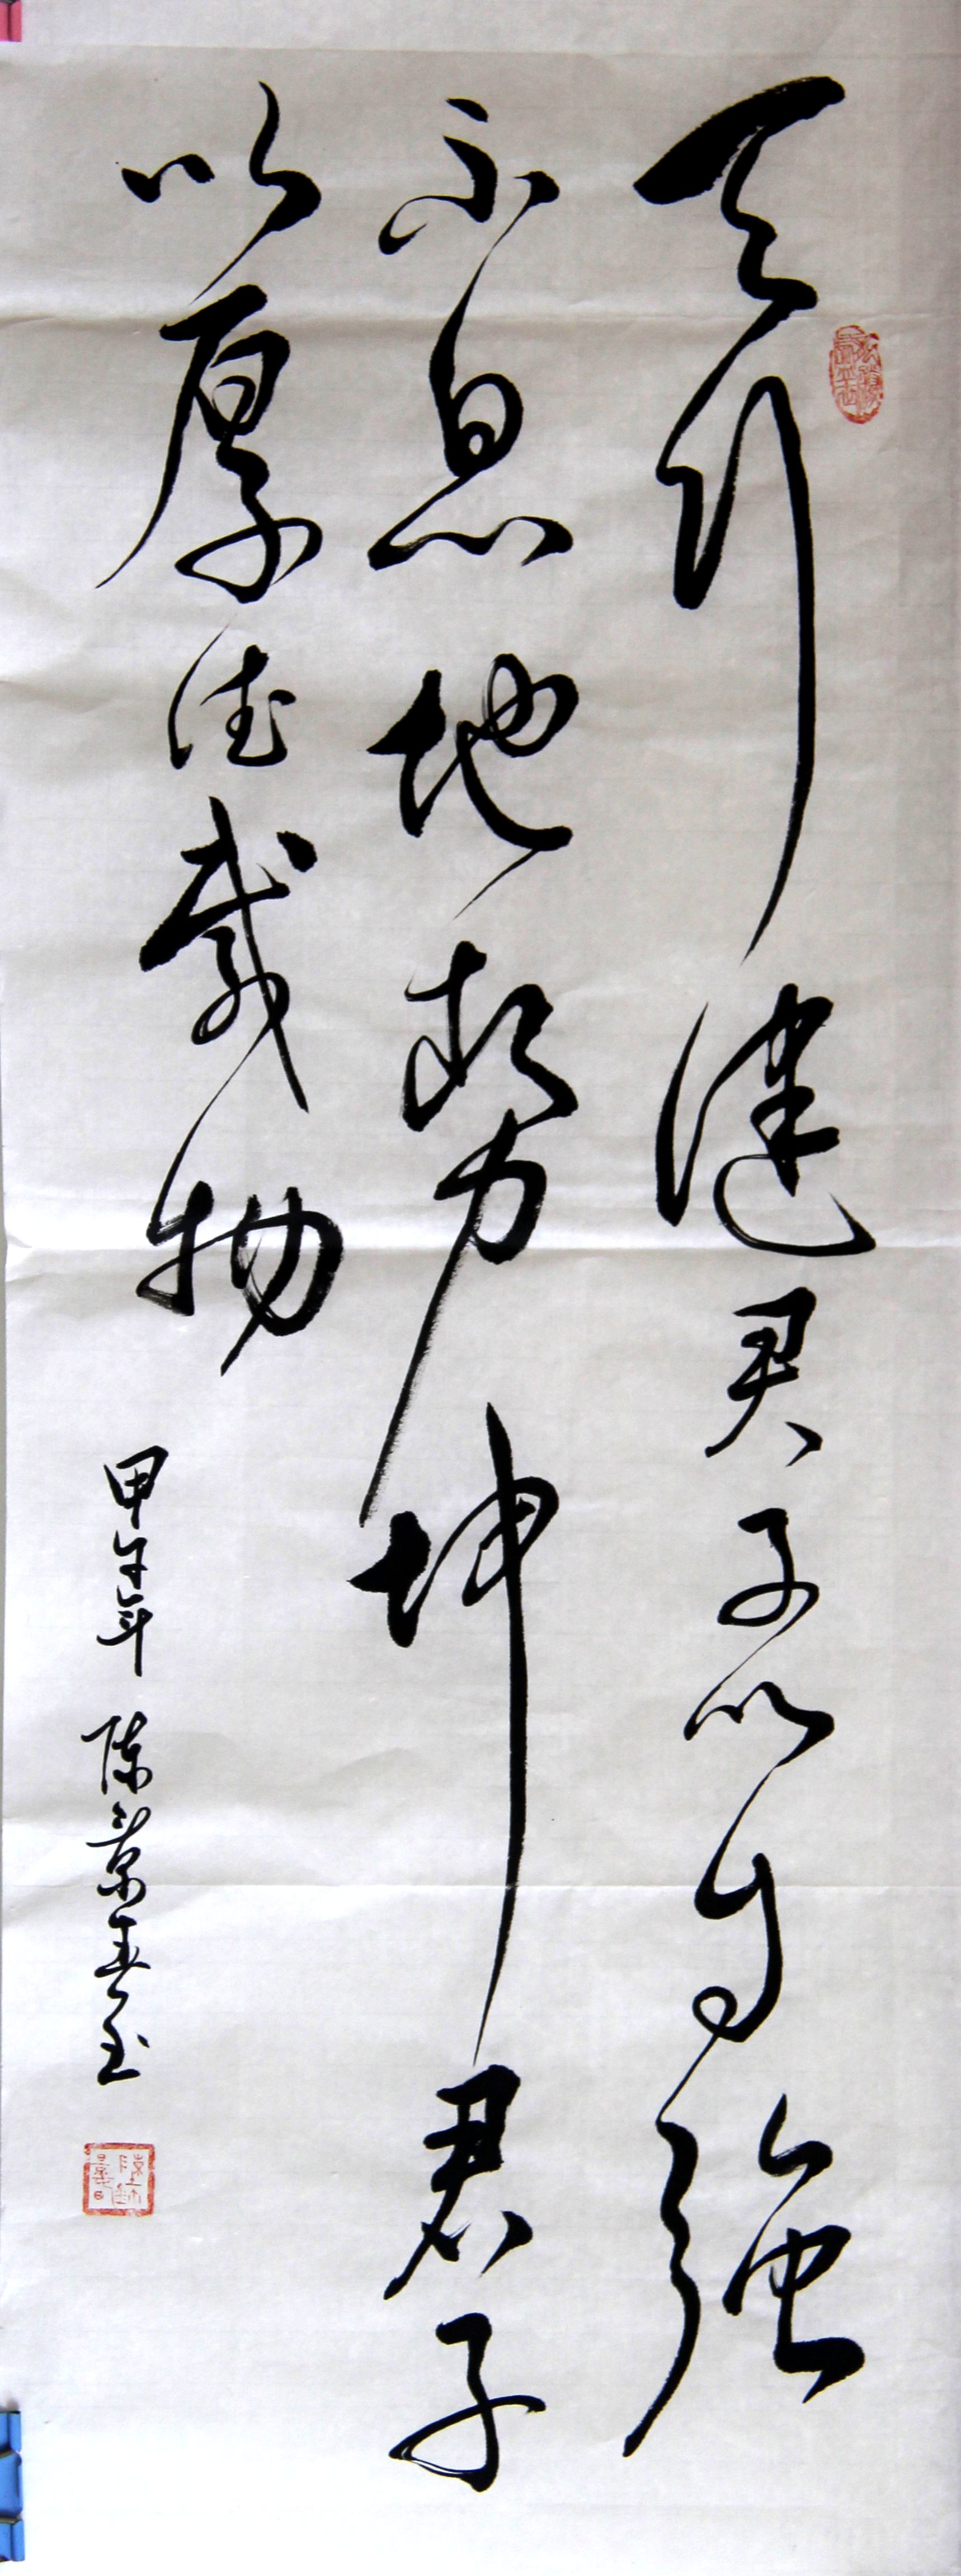 天行健君子以自強
不息地势坤君子
以厚德载物
甲午年 陈景春书